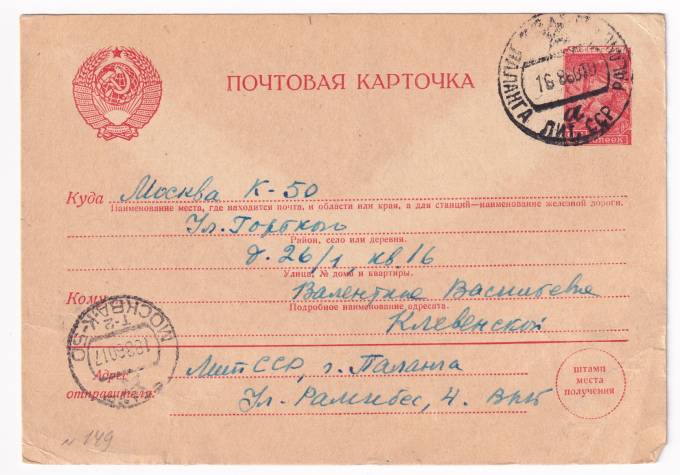 ПОЧТОВАЯ КАРТОЧКА
ПАЛАНГА ЛИТ. ССР
а
Куда Москва К-50
Наименование места, где находится почта, и области или края, а для станций—наименование железной дороги.
Ул. Горького
Район, село или деревня.
д. 26/1, кв. 16
Улица, № дома и квартиры.
Кому Валентине Васильевне
Подробное наименование адресата.
Клевенской
МОСКВА К-50
Адрес Лит ССР, г. Паланга
отправителя: Ул. Рамибес, 4.
штамп
места
получения
№ 149